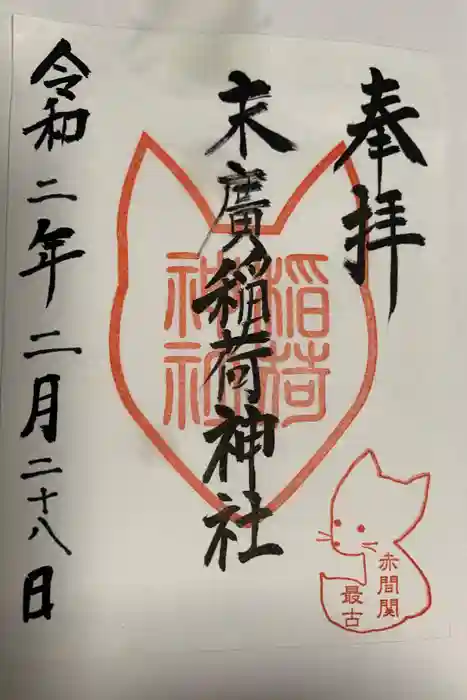 奉拝
末廣稲荷神社
稲荷
神社
令和二年二月二十八日
赤間関
最古